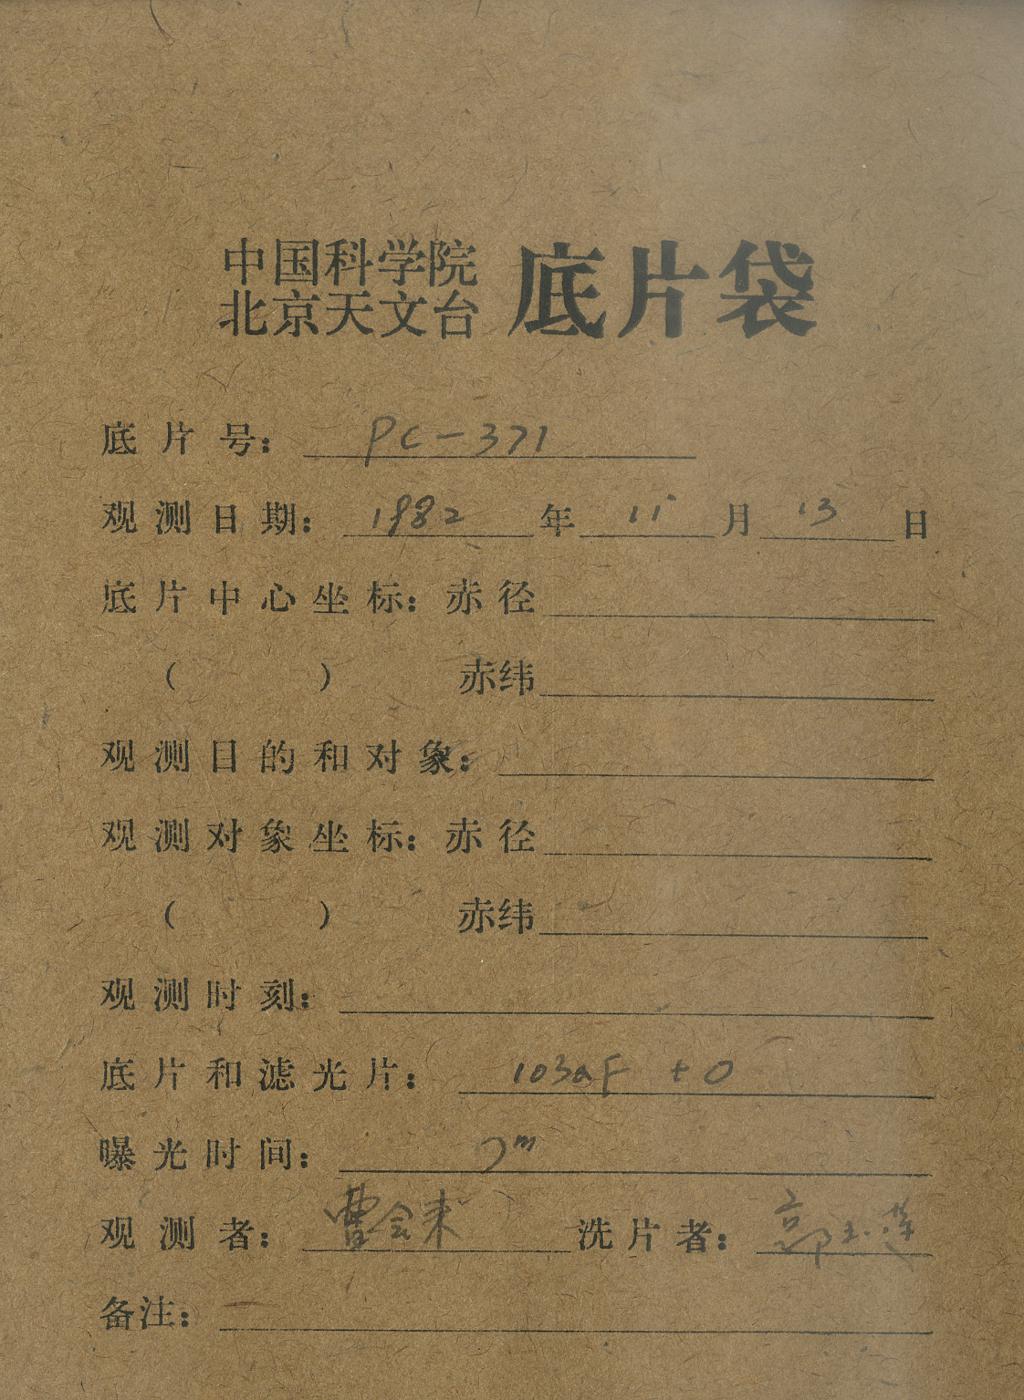 中国科学院
北京天文台 底片袋
底片号: PC-371
观测日期: 1982 年 11 月 13 日
底片中心坐标: 赤径
( ) 赤纬
观测目的和对象:
观测对象坐标: 赤径
( ) 赤纬
观测时刻:
底片和滤光片: 103aF + O
曝光时间: 7m
观测者: 曹会来 洗片者: 郭玉莲
备注: